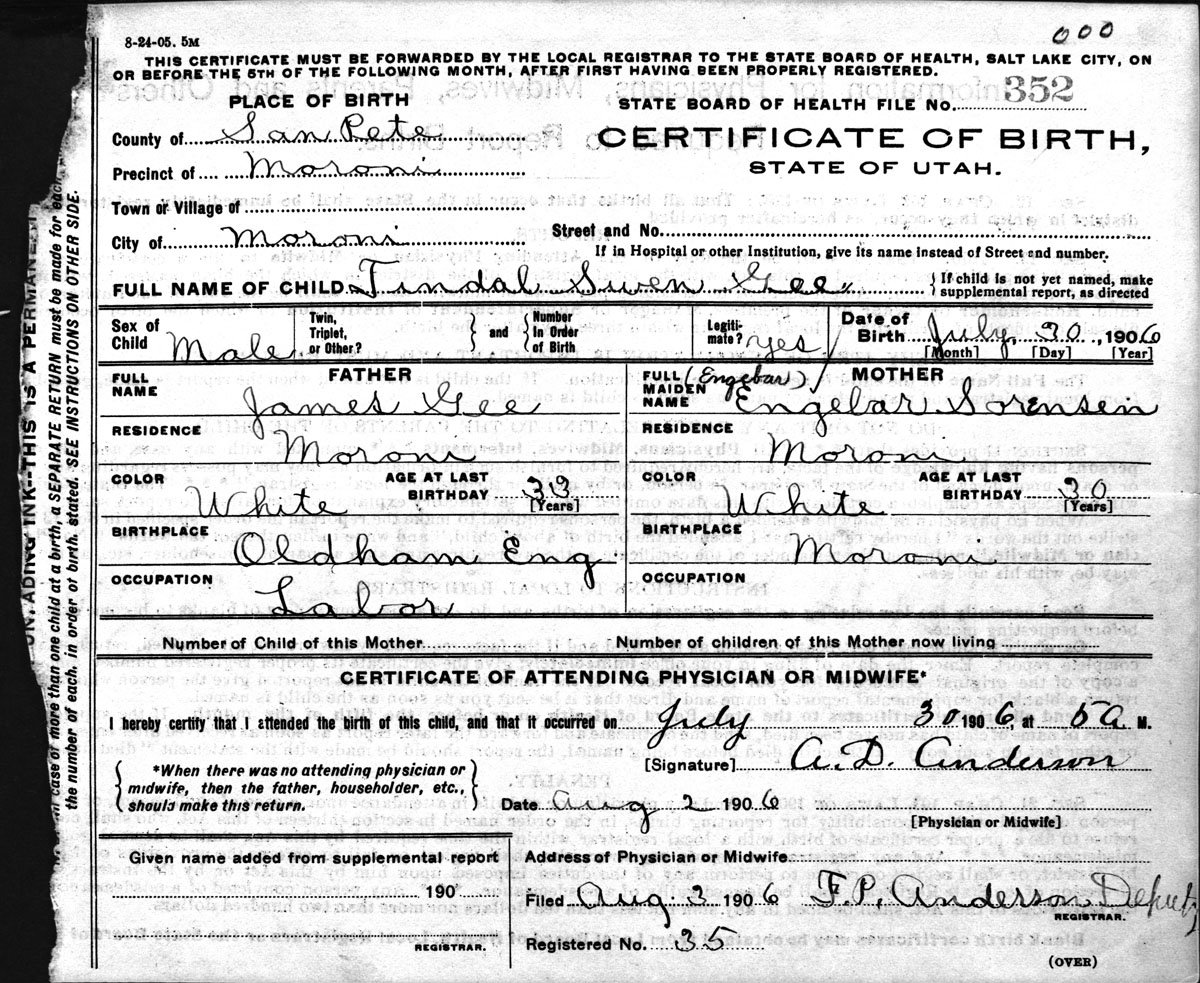 000
8-24-05. 5M
THIS CERTIFICATE MUST BE FORWARDED BY THE LOCAL REGISTRAR TO THE STATE BOARD OF HEALTH, SALT LAKE CITY, ON
OR BEFORE THE 5TH OF THE FOLLOWING MONTH, AFTER FIRST HAVING BEEN PROPERLY REGISTERED.
PLACE OF BIRTH
STATE BOARD OF HEALTH FILE NO. 352
County of San Pete
CERTIFICATE OF BIRTH,
STATE OF UTAH.
Precinct of Moroni
Town or Village of
City of Moroni
Street and No.
If in Hospital or other Institution, give its name instead of Street and number.
FULL NAME OF CHILD Tindal Swen Gee { If child is not yet named, make supplemental report, as directed
Sex of Child Male
Twin, Triplet, or Other? } and { Number In Order of Birth
Legiti- mate? yes
Date of Birth July 30, 1906
[Month] [Day] [Year]
FATHER
FULL NAME James Gee
RESIDENCE Moroni
COLOR White
AGE AT LAST BIRTHDAY 33 [Years]
BIRTHPLACE Oldham Eng
OCCUPATION Labor
MOTHER
FULL MAIDEN NAME (Engebar) Engebar Sorensen
RESIDENCE Moroni
COLOR White
AGE AT LAST BIRTHDAY 30 [Years]
BIRTHPLACE Moroni
OCCUPATION
Number of Child of this Mother
Number of children of this Mother now living
CERTIFICATE OF ATTENDING PHYSICIAN OR MIDWIFE*
I hereby certify that I attended the birth of this child, and that it occurred on July 30 1906, at 5 a M.
[Signature] A. D. Anderson
{ *When there was no attending physician or midwife, then the father, householder, etc., should make this return. }
Date Aug 2 1906
[Physician or Midwife]
Given name added from supplemental report
190
REGISTRAR.
Address of Physician or Midwife
Filed Aug 3 1906 F. P. Anderson Deputy
REGISTRAR.
Registered No. 35
(OVER)
UNFADING INK--THIS IS A PERMANENT
case of more than one child at a birth, a SEPARATE RETURN must be made for each,
the number of each, in order of birth, stated. SEE INSTRUCTIONS ON OTHER SIDE.